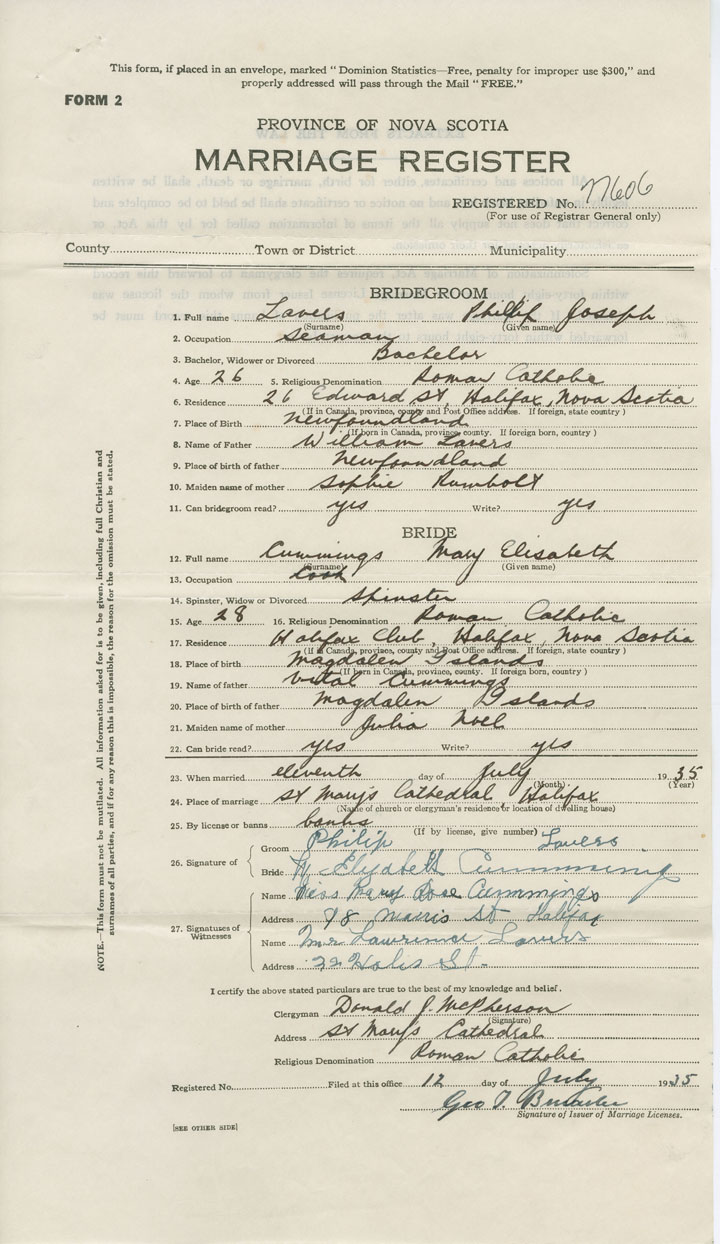 This form, if placed in an envelope, marked "Dominion Statistics—Free, penalty for improper use $300," and
properly addressed will pass through the Mail "FREE."
FORM 2
PROVINCE OF NOVA SCOTIA
MARRIAGE REGISTER
REGISTERED No. 77606
(For use of Registrar General only)
County Town or District Municipality
BRIDEGROOM
1. Full name Lavers Phillip Joseph
(Surname) (Given name)
2. Occupation Seaman
3. Bachelor, Widower or Divorced Bachelor
4. Age 26 5. Religious Denomination Roman Catholic
6. Residence 26 Edward St, Halifax, Nova Scotia
(If in Canada, province, county and Post Office address. If foreign, state country)
7. Place of Birth Newfoundland
(If born in Canada, province, county. If foreign born, country)
8. Name of Father William Lavers
9. Place of birth of father Newfoundland
10. Maiden name of mother Sophie Rumbolt
11. Can bridegroom read? yes Write? yes
BRIDE
12. Full name Cummings Mary Elisabeth
(Surname) (Given name)
13. Occupation Cook
14. Spinster, Widow or Divorced Spinster
15. Age 28 16. Religious Denomination Roman Catholic
17. Residence Halifax Club, Halifax, Nova Scotia
(If in Canada, province, county and Post Office address. If foreign, state country)
18. Place of birth Magdalen Islands
(If born in Canada, province, county. If foreign born, country)
19. Name of father Vital Cummings
20. Place of birth of father Magdalen Islands
21. Maiden name of mother Julia Noel
22. Can bride read? yes Write? yes
23. When married eleventh day of July 1935
(Month) (Year)
24. Place of marriage St Mary's Cathedral, Halifax
(Name of church or clergyman's residence or location of dwelling house)
25. By license or banns banns
(If by license, give number)
26. Signature of
Groom Philip Lavers
Bride Elizabeth Cumming
27. Signatures of Witnesses
Name Miss Mary Rose Cummings
Address 98 Morris St Halifax
Name Mrs Lawrence Lavers
Address 22 Holis St.
I certify the above stated particulars are true to the best of my knowledge and belief.
Clergyman Donald J. McPherson
(Signature)
Address St Mary's Cathedral
Religious Denomination Roman Catholic
Registered No. Filed at this office 12 day of July 1935
Geo T.
Signature of Issuer of Marriage Licenses.
[SEE OTHER SIDE]
NOTE.—This form must not be mutilated. All information asked for is to be given, including full Christian and
surnames of all parties, and if for any reason this is impossible, the reason for the omission must be stated.